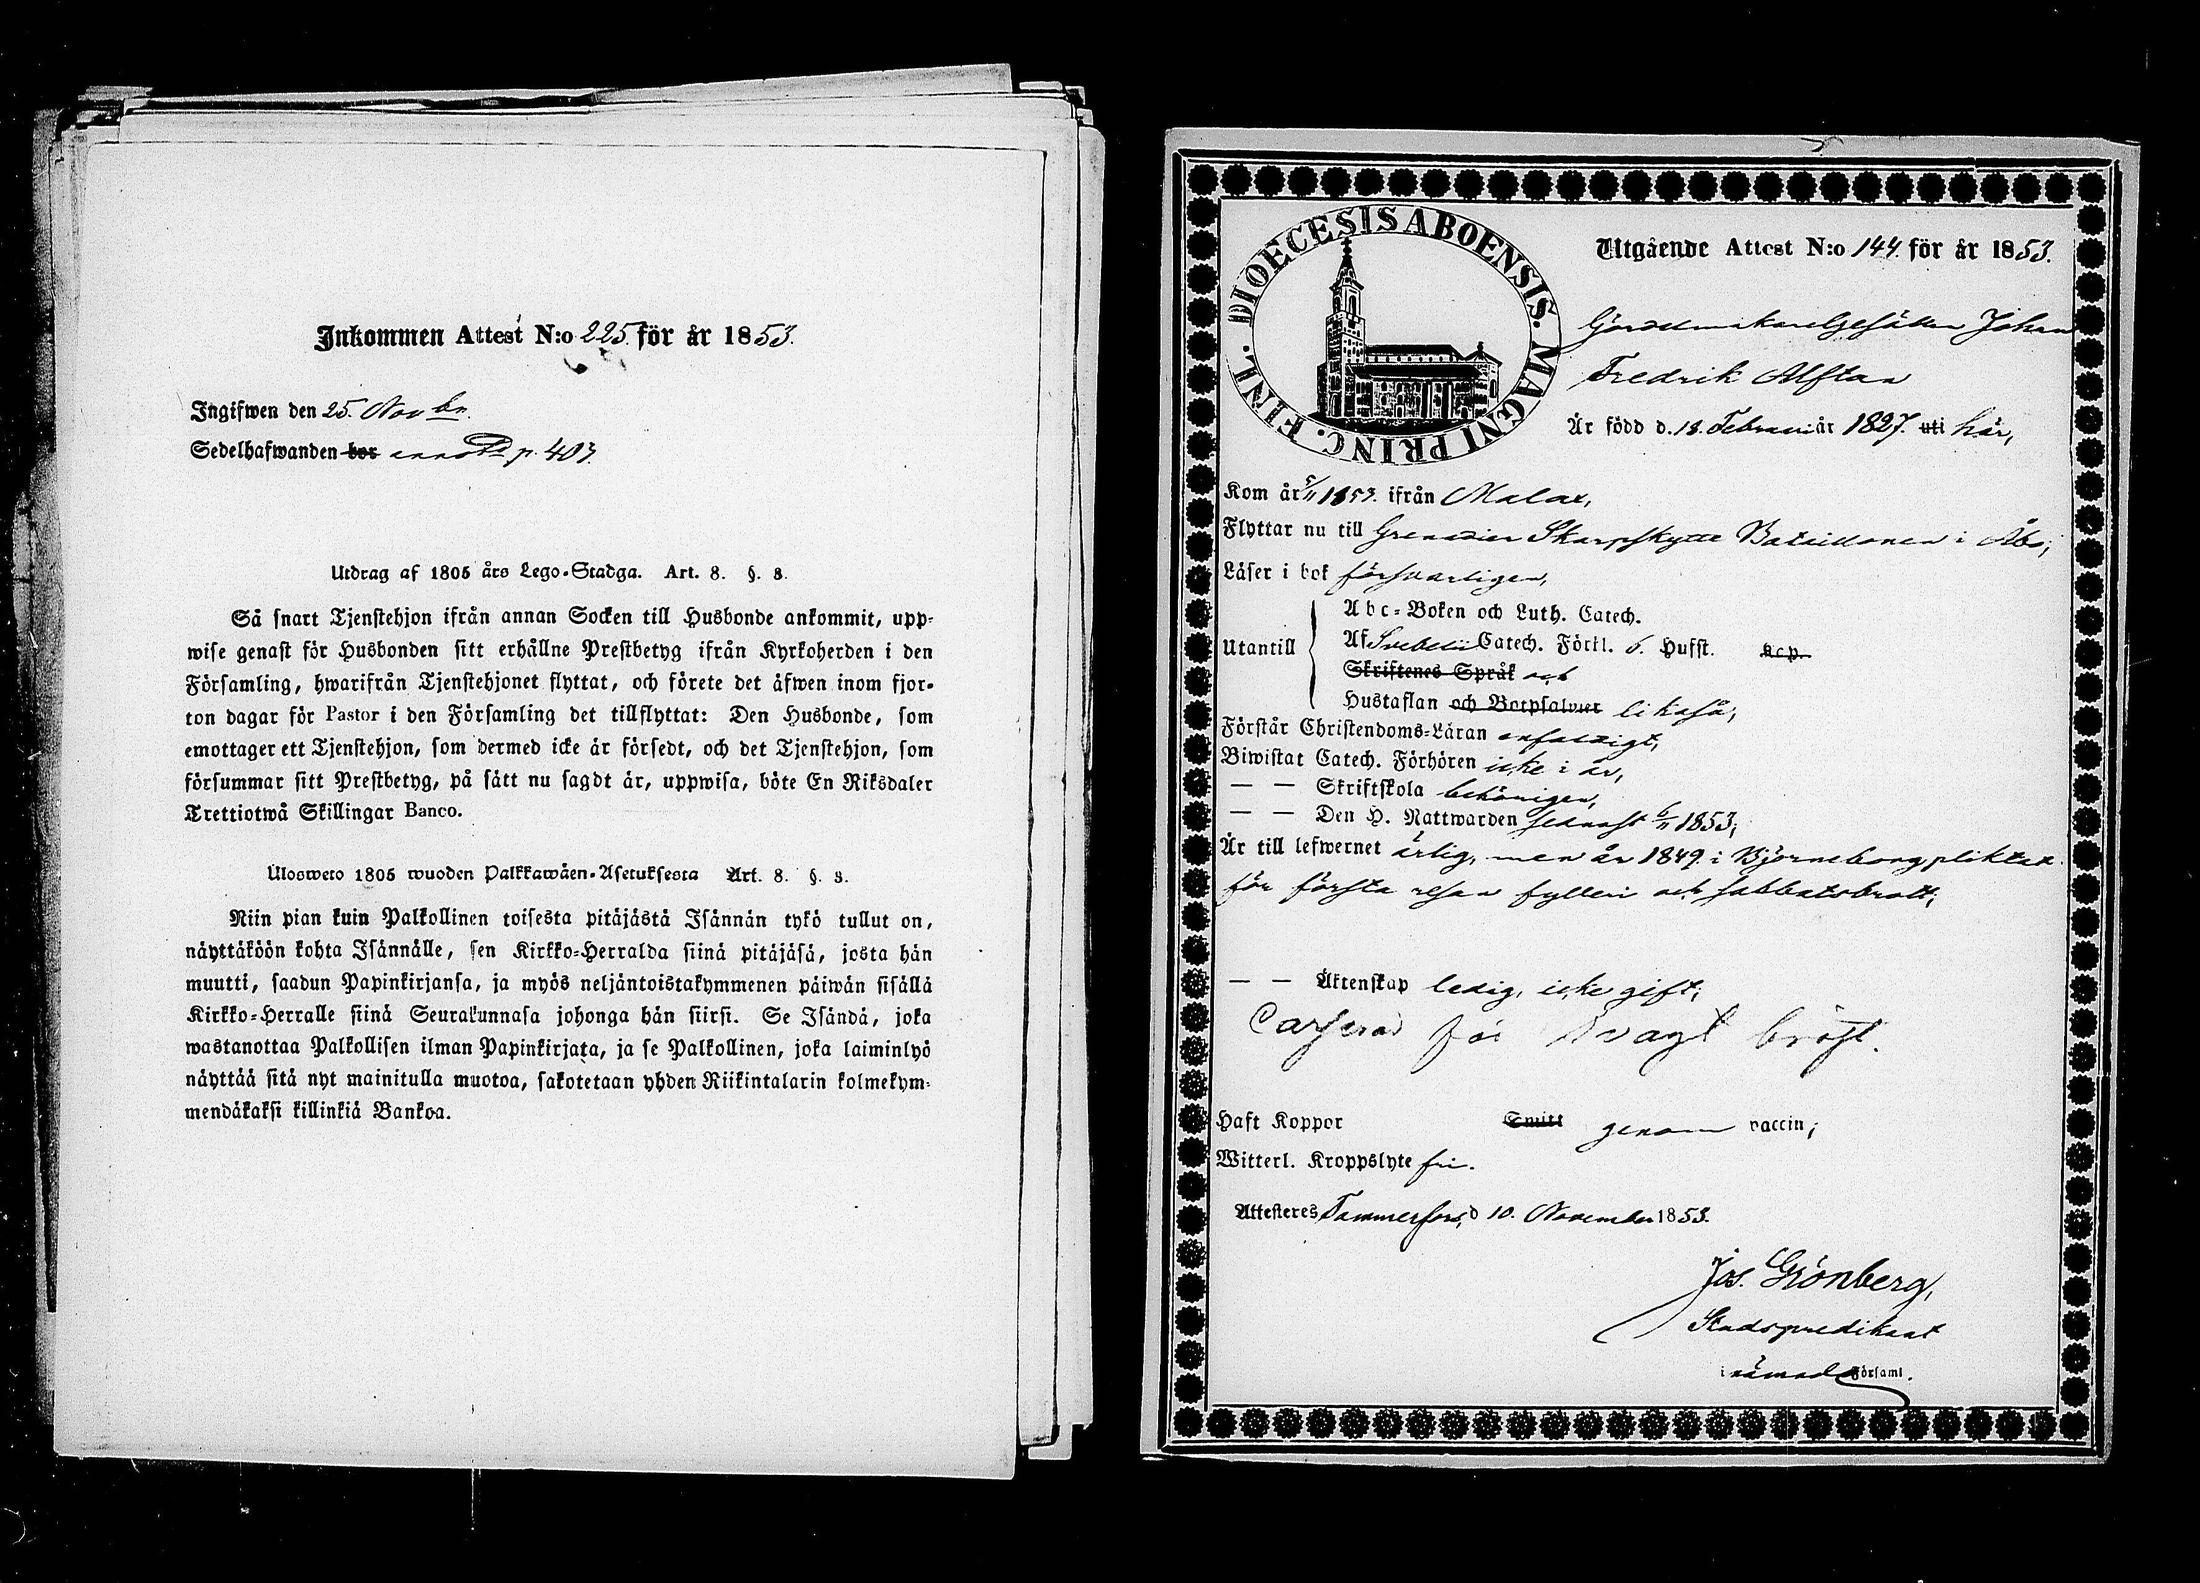 Inkommen Attest N:o 225 för år 1853.
Ingifwen den 25. Novbr.
Sedelhafwanden bor annotd p. 403.
Utdrag af 1805 års Lego-Stadga. Art. 8. §. 8.
Så snart Tjenstehjon ifrån annan Socken till Husbonde ankommit, upp-
wise genast för Husbonden sitt erhållne Prestbetyg ifrån Kyrkoherden i den
Församling, hwarifrån Tjenstehjonet flyttat, och förete det äfwen inom fjor-
ton dagar för Pastor i den Församling det tillflyttat: Den Husbonde, som
emottager ett Tjenstehjon, som dermed icke är försedt, och det Tjenstehjon, som
försummar sitt Prestbetyg, på sätt nu sagdt är, uppwisa, böte En Riksdaler
Trettiotwå Skillingar Banco.
Ulosweto 1805 wuoden Palkkawäen-Asetuksesta Art. 8. §. 8.
Niin pian kuin Palkollinen toisesta pitäjästä Isännän tykö tullut on,
näyttäköön kohta Isännälle, sen Kirkko-Herralda siinä pitäjäsä, josta hän
muutti, saadun Papinkirjansa, ja myös neljäntoistakymmenen päiwän sisällä
Kirkko-Herralle siinä Seurakunnasa johonga hän siirsi. Se Isändä, joka
wastanottaa Palkollisen ilman Papinkirjata, ja se Palkollinen, joka laiminlyö
näyttää sitä nyt mainitulla muotoa, sakotetaan yhden Riikintalarin kolmekym-
mendäkaksi killinkiä Bankoa.
DIOECESIS ABOENSIS. MAGNI PRINC. FINL.
Utgående Attest N:o 144 för år 1853.
Gördelmakaregesällen Johan
Fredrik Alftan
Är född d. 18. Februari år 1827. uti här,
Kom år 5/11 1853. ifrån Malax,
Flyttar nu till Grenadier Skarpskytte Bataillonen i Åbo;
Läser i bok försvarligen,
Utantill
Abc-Boken och Luth. Catech.
Af Svebelii Catech. Förkl. 6. Hufst. Kap.
Skriftenes Språk och
Hustaflan och Botpsalmer likaså;
Förstår Christendoms-Läran enfaldigt,
Biwistat Catech. Förhören icke i år,
— — Skriftskola behörigen,
— — Den H. Nattwarden senast 6/11 1853;
Är till lefwernet ärlig, men år 1849. i Björneborg pliktat
för första resan fylleri och sabbatsbrott;
— — Äktenskap ledig, icke gift;
Casserad för svagt bröst.
Haft Koppor Smitt genom vaccin;
Witterl. Kroppslyte fri.
Attesteres Tammerfors, d 10. November 1853.
Jos. Grönberg,
Stadspredikant
i nämnde Församl.